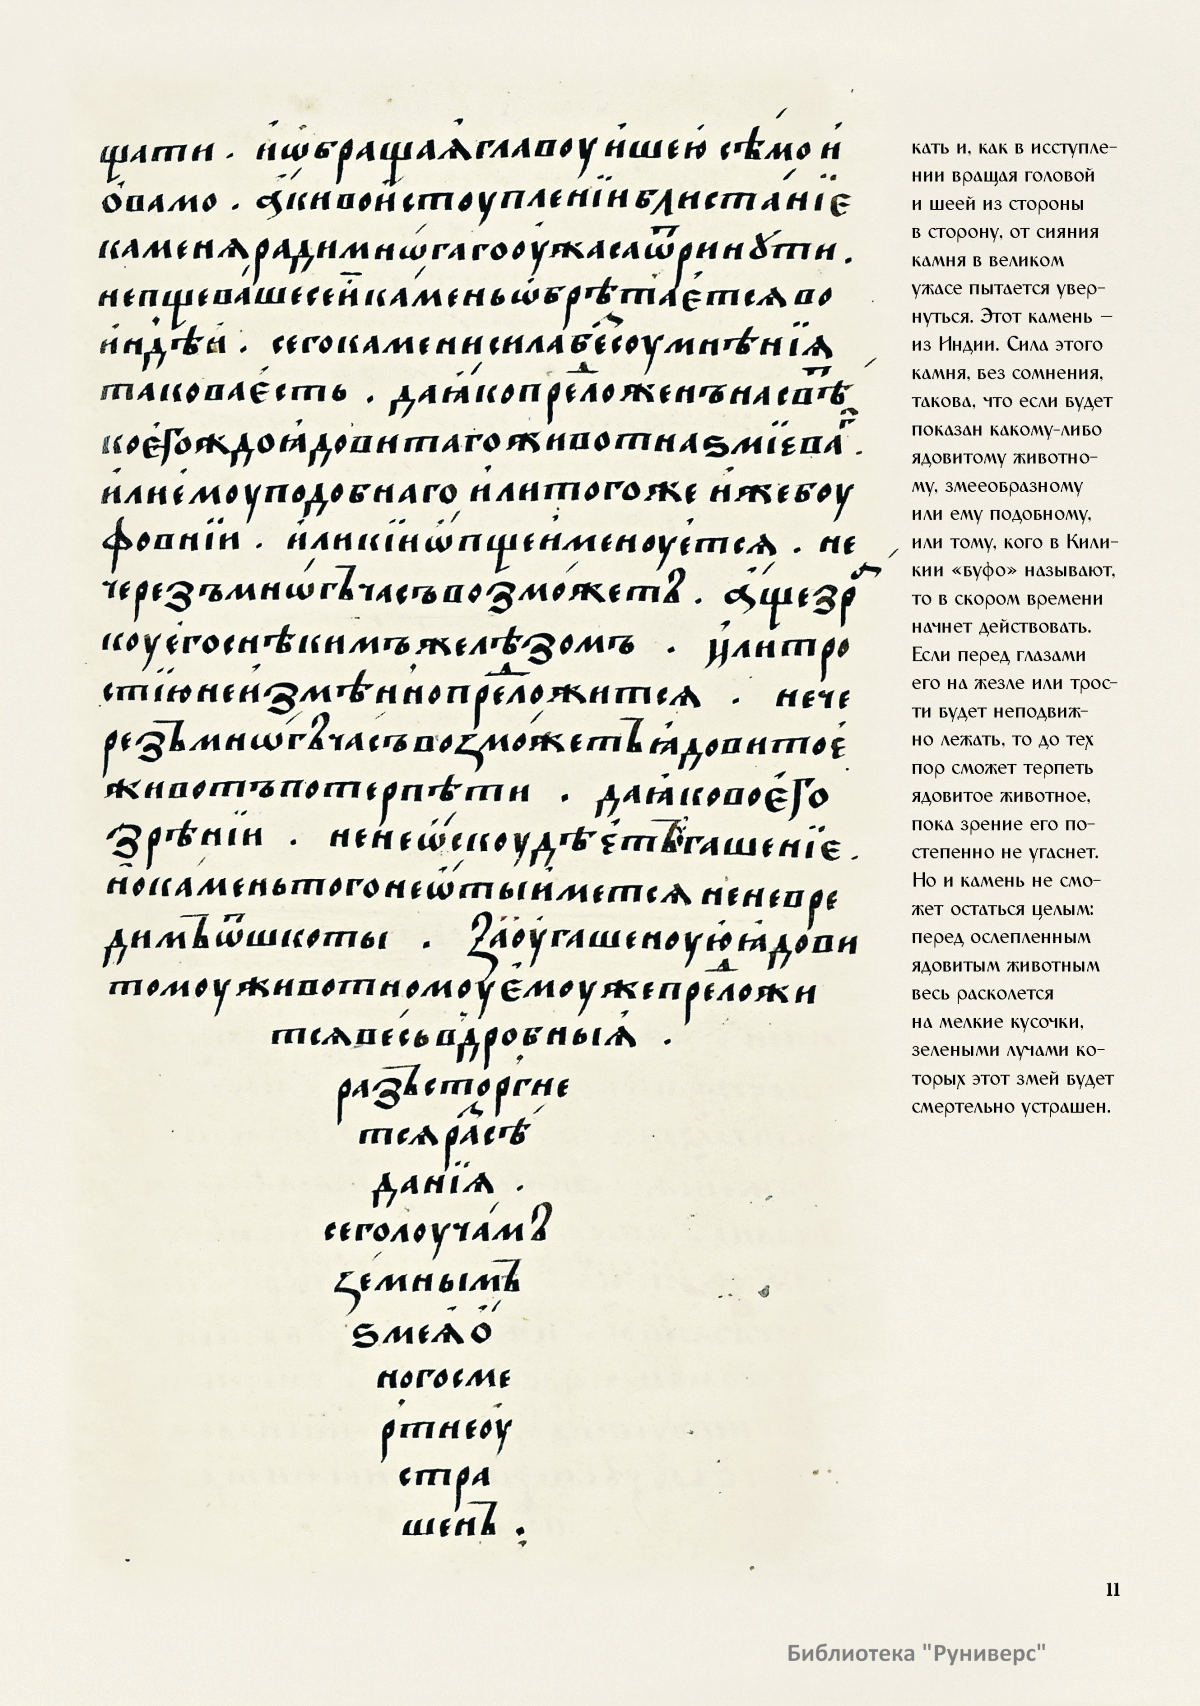 щати . и҆ѡ҆бращаѧ҆главоу и҆шею̀ сѣ́мо и҆
о҆ва́мо . ꙗ҆́киво и҆стоуплені́и блиста́нїе
каменѧ ради мнѡ́гаго оу҆жаса ѿринꙋти .
непщеваше сей ка́мень ѡ҆брѣта́етсѧ во
и҆ндѣ́и . сего камени сила бе́соумнѣнїѧ
такова є҆сть . да ꙗ҆́ко прело́женъ на спⷣѣ
коегождо ꙗ҆довитаго животна ѕмїева .
и҆ли є҆моу подобнаго и҆ли того же и҆же боу
фовнїи . и҆ли кїнѡпще и҆меноуетсѧ . не
черезъ мнѡгъ часъ возможетъ . а҆ще зр
коу є҆го снѣкимъ желѣзомъ . и҆ли тро
стїю не и҆змѣнно преложитсѧ . нече
резъ мнѡгъ часъ возможетъ ꙗ҆довитое
животъ потерпѣти . да ꙗ҆ково є҆го
зрѣнїи . не не ѡ҆скоудѣетъ гашенїе .
но камень того не ѿты и҆метсѧ не невре
димъ ѿ шкоты . За оу҆гашеноую ꙗ҆дови
томоу животномоу є҆моуже преложи
тсѧ весь в дробныѧ .
разъсторгне
тсѧ рассѣ
данїѧ .
сего лоучамъ
земнымъ
ѕмеѧ ѻ҆
ного сме
ртне оу
стра
шенъ .
кать и, как в исступле-
нии вращая головой
и шеей из стороны
в сторону, от сияния
камня в великом
ужасе пытается увер-
нуться. Этот камень —
из Индии. Сила этого
камня, без сомнения,
такова, что если будет
показан какому-либо
ядовитому животно-
му, змееобразному
или ему подобному,
или тому, кого в Кили-
кии «буфо» называют,
то в скором времени
начнет действовать.
Если перед глазами
его на жезле или трос-
ти будет неподвиж-
но лежать, то до тех
пор сможет терпеть
ядовитое животное,
пока зрение его по-
степенно не угаснет.
Но и камень не смо-
жет остаться целым:
перед ослепленным
ядовитым животным
весь расколется
на мелкие кусочки,
зелеными лучами ко-
торых этот змей будет
смертельно устрашен.
11
Библиотека "Руниверс"